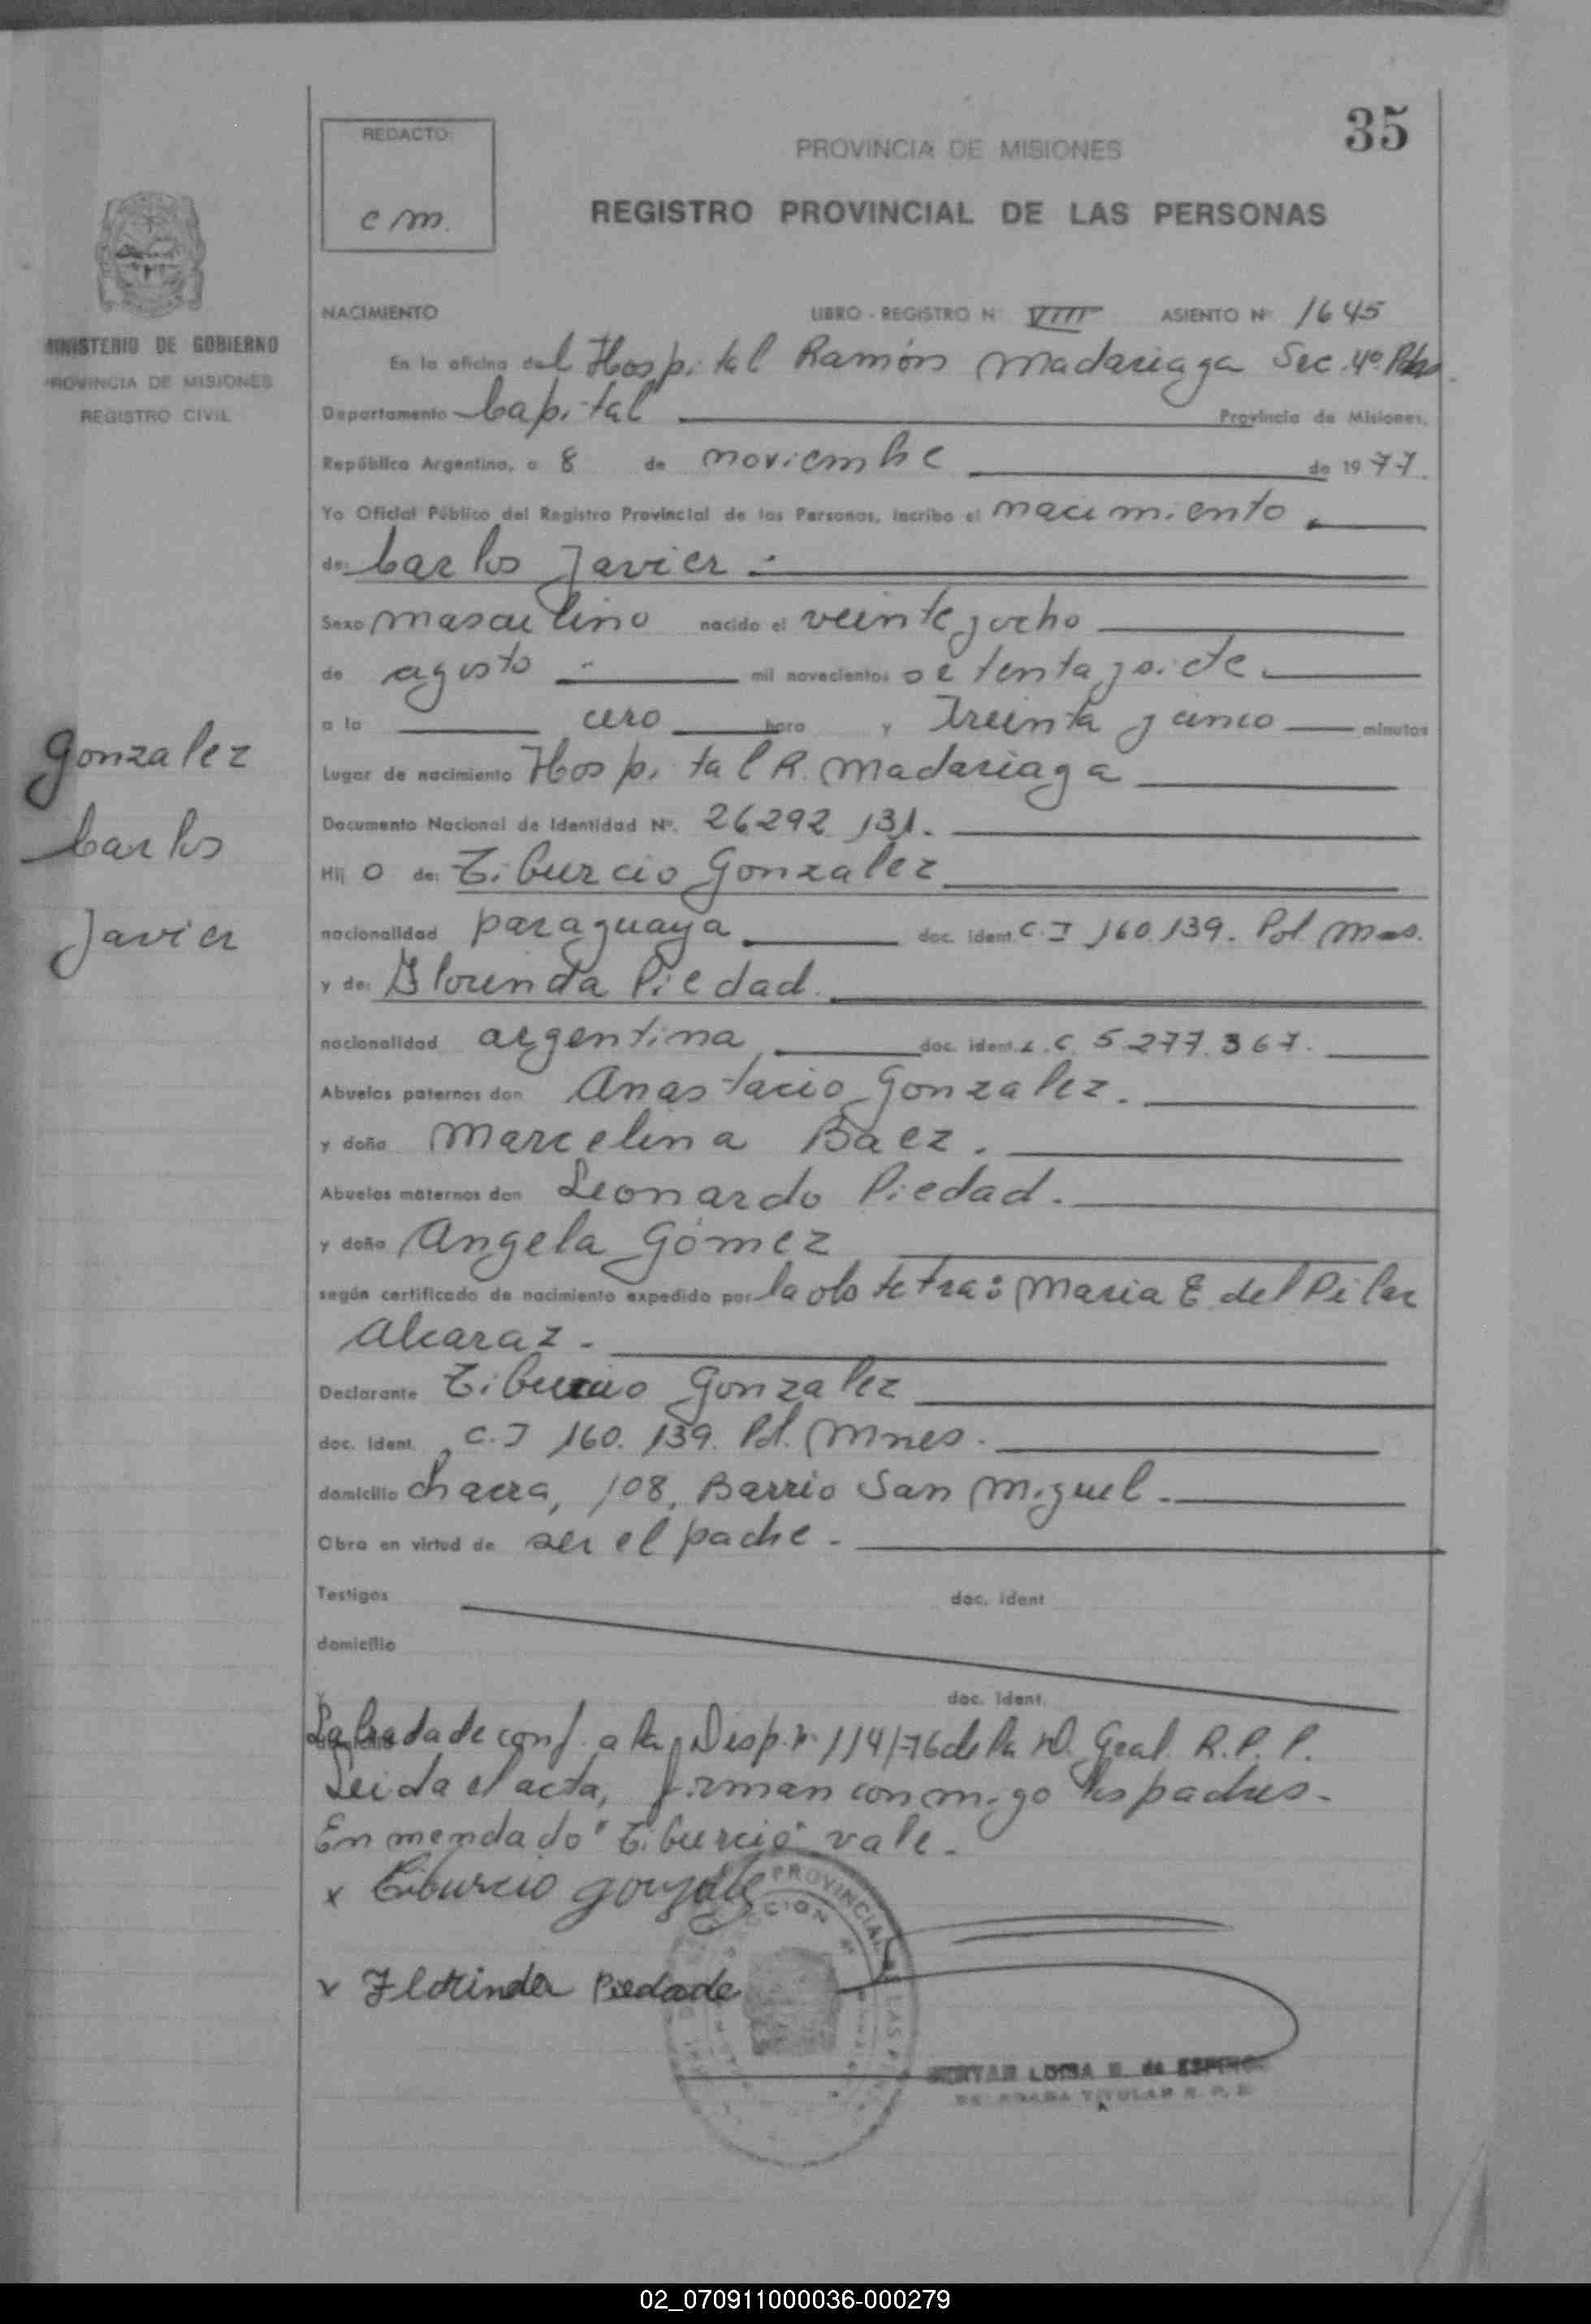 35
REDACTO:
cm.
PROVINCIA DE MISIONES
REGISTRO PROVINCIAL DE LAS PERSONAS
MINISTERIO DE GOBIERNO
PROVINCIA DE MISIONES
REGISTRO CIVIL
NACIMIENTO LIBRO - REGISTRO N° VIII ASIENTO N° 1645
En la oficina del Hospital Ramón Madariaga Sec. 4º. Pdas.
Departamento Capital Provincia de Misiones,
República Argentina, a 8 de noviembre de 1977.
Yo Oficial Público del Registro Provincial de las Personas, inscribo el nacimiento
de: Carlos Javier
Sexo masculino nacido el veinte y ocho
de agosto mil novecientos setenta y siete
a la cero hora y treinta y cinco minutos
Lugar de nacimiento Hospital R. Madariaga
Documento Nacional de Identidad N°. 26292.131.
Hij o de: Tiburcio Gonzalez
nacionalidad paraguaya doc. ident. C.I 160.139. Pol. Mnes.
y de: Florinda Piedad.
nacionalidad argentina doc. ident. L.C. 5.277.367.
Abuelos paternos don Anastacio Gonzalez.
y doña Marcelina Baez.
Abuelos maternos don Leonardo Piedad.
y doña Angela Gómez
según certificado de nacimiento expedido por la obstetra: Maria E. del Pilar
Alcaraz.
Declarante Tiburcio Gonzalez
doc. ident. C.I 160.139. Pol. Mnes.
domicilio chacra, 108, Barrio San Miguel.
Obra en virtud de ser el padre.
Testigos doc. ident
domicilio
doc. ident.
Labrada de conf. a la Disp. n. 114/76 de la D. Gral. R.P.P.
Leida el acta, firman conmigo los padres.
Enmendado "Tiburcio" vale.
x Tiburcio gonzalez
x Florinda Piedade
PROVINCIAL
LOISA
TITULAR R. P. P.
Gonzalez
Carlos
Javier
02_070911000036-000279